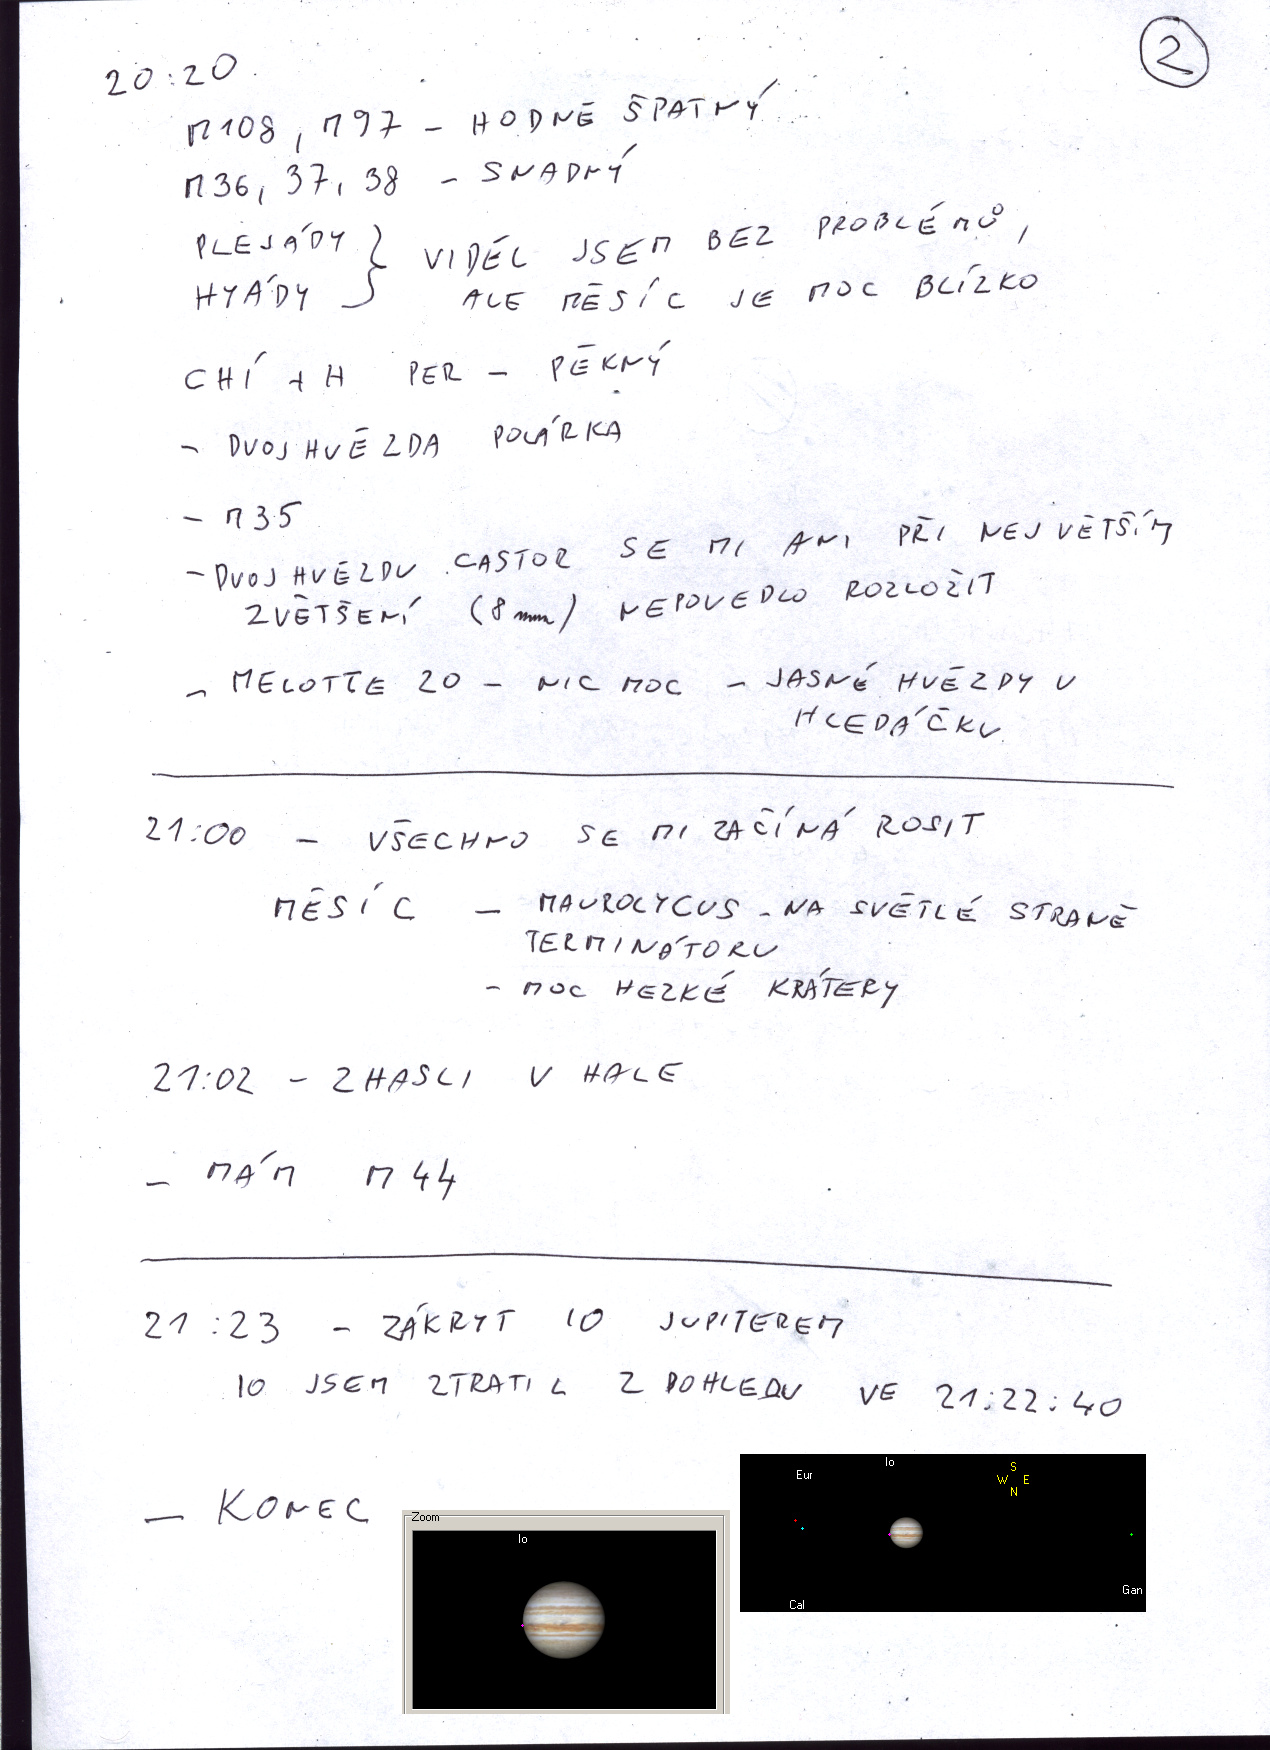 2
20:20
M108, M97 - HODNĚ ŠPATNÝ
M36, 37, 38 - SNADNÝ
PLEJÁDY } VIDĚL JSEM BEZ PROBLÉMŮ,
HYÁDY ALE MĚSÍC JE MOC BLÍZKO
CHÍ + H PER - PĚKNÝ
- DVOJHVĚZDA POLÁRKA
- M35
- DVOJHVĚZDU CASTOR SE MI ANI PŘI NEJVĚTŠÍM
ZVĚTŠENÍ (8mm) NEPOVEDLO ROZLOŽIT
- MELOTTE 20 - NIC MOC - JASNÉ HVĚZDY V
HLEDÁČKU
21:00 - VŠECHNO SE MI ZAČÍNÁ ROSIT
MĚSÍC - MAUROLYCUS - NA SVĚTLÉ STRANĚ
TERMINÁTORU
- MOC HEZKÉ KRÁTERY
21:02 - ZHASLI V HALE
- MÁM M44
21:23 - ZÁKRYT IO JUPITEREM
IO JSEM ZTRATIL Z DOHLEDU VE 21:22:40
- KONEC
Zoom
Io
Eur
Io
S
W E
N
Gan
Cal